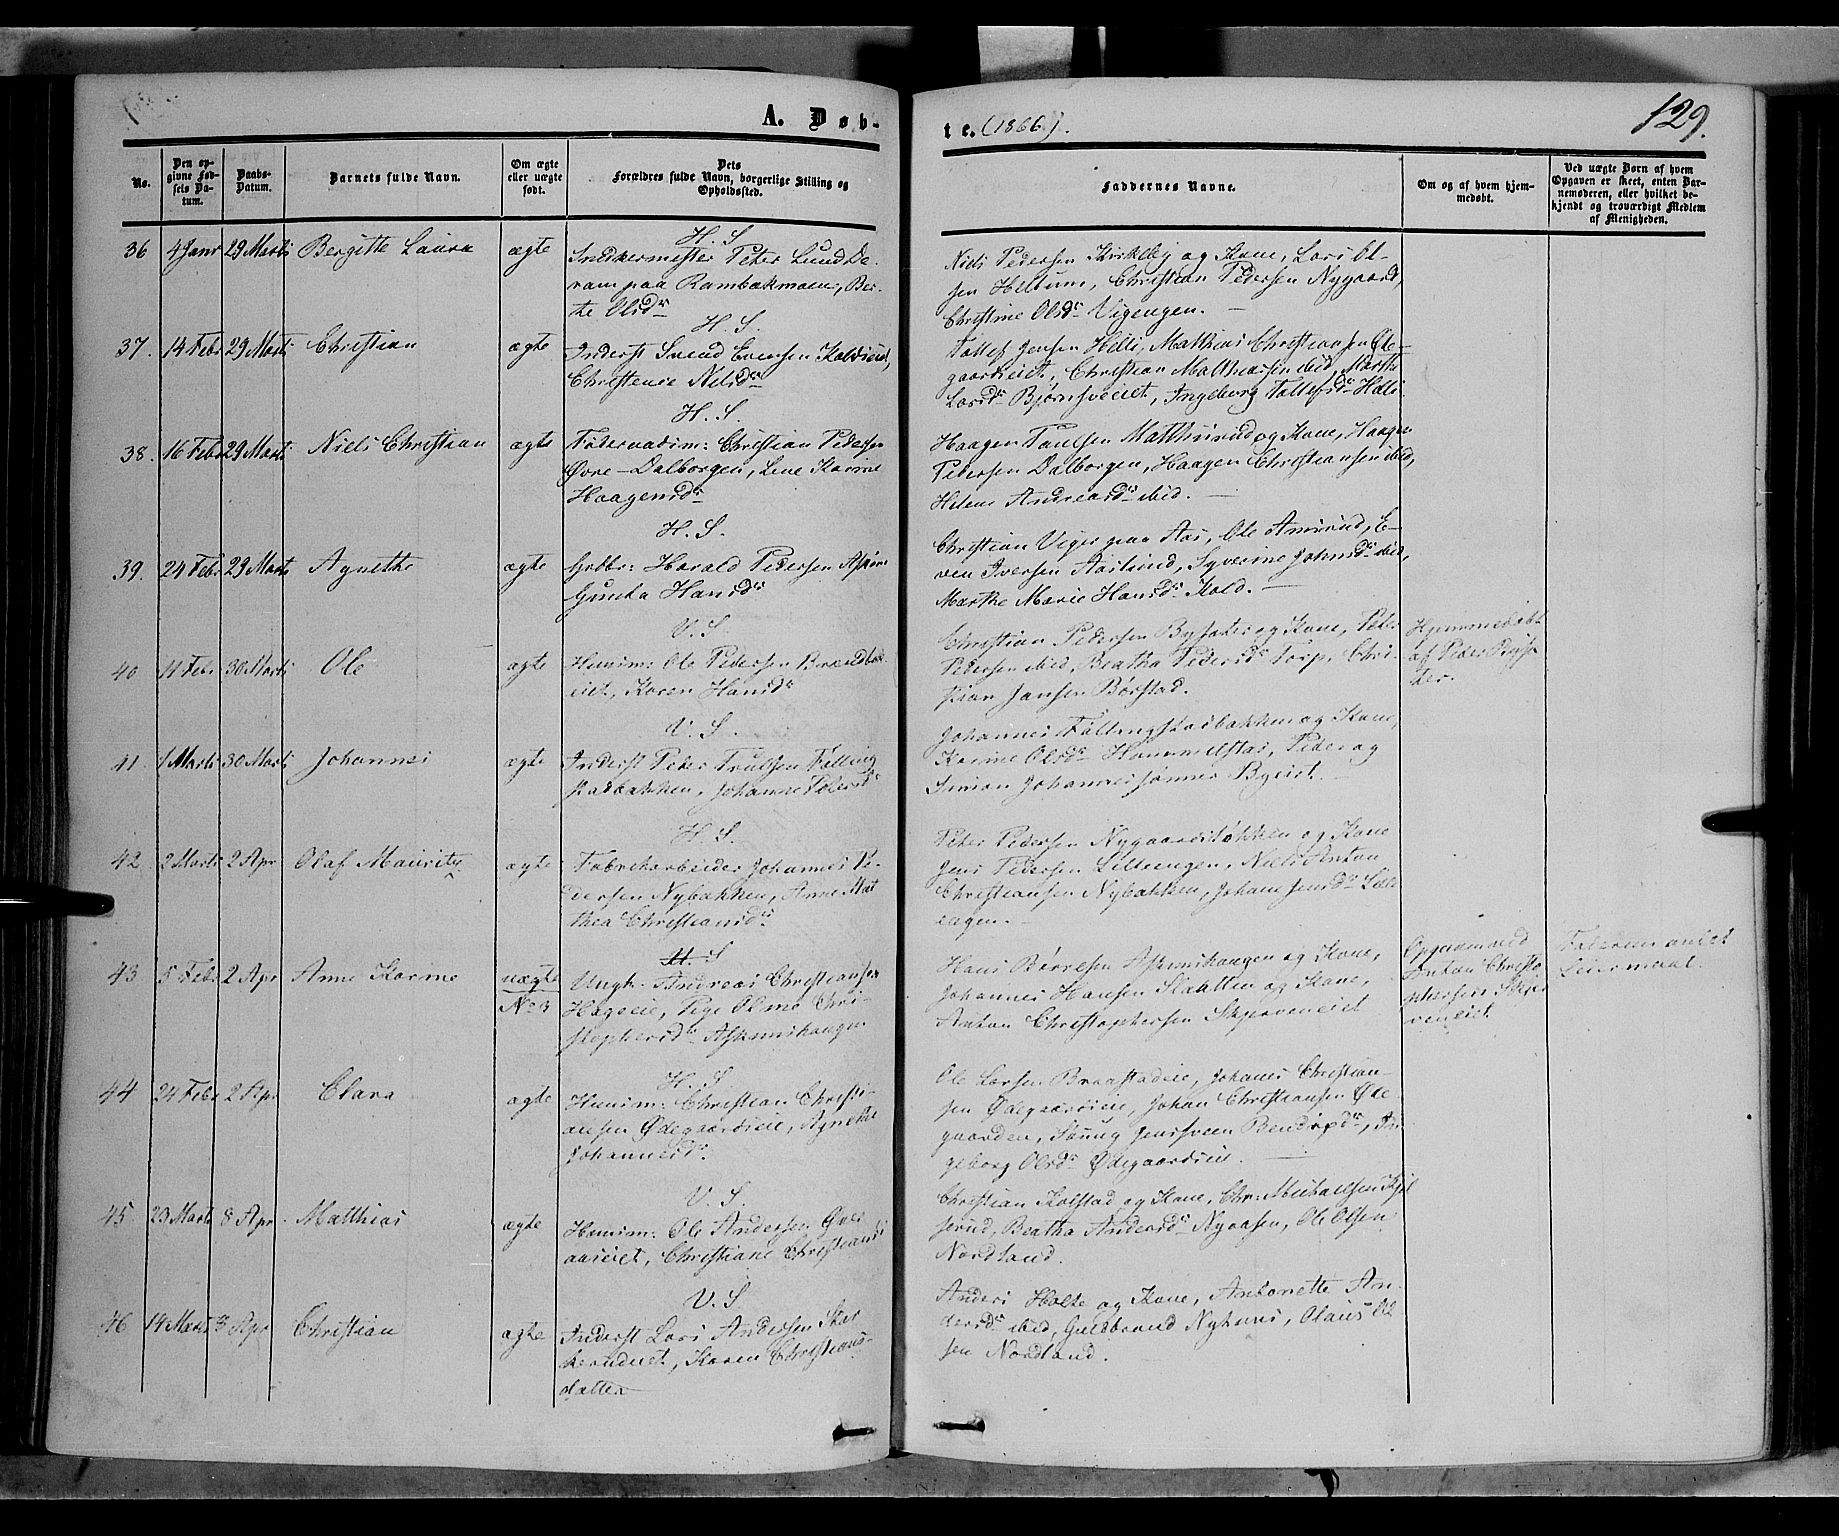 129.
A. Døb-
te. (1866).
No.
Den op-
givne Fød-
sels Da-
tum.
Daabs-
Datum.
Barnets fulde Navn.
Om ægte
eller uægte
født.
Dets
Forældres fulde Navn, borgerlige Stilling og
Opholdssted.
Faddernes Navne.
Om og af hvem hjem-
medøbt.
Ved uægte Børn af hvem
Opgaven er skeet, enten Bar-
nemoderen, eller hvilket be-
kjendt og troværdigt Medlem
af Menigheden.
36 4 Janr 29 Marts Bergitte Laura ægte
H. S.
Snedkermester Peter Lund De-
ram paa Rambækmoen, Ber-
the Olsdr
Niels Pedersen Kirkeby og Kone, Lars Ol-
sen Heltum, Christian Pedersen Nygaard,
Christine Olsdr Vigengen. –
37. 14 Febr 29 Marts Christian ægte
H. S.
Inderst Svend Evensen
Christence Nilsdr
Tollef Jensen Helli, Matthias Christiansen Øde-
gaardseiet, Christian Matthiasen ibid, Marthe
Larsdr Bjørnsveiet, Ingeborg Tollefsdr Helli
38. 16 Febr 29 Marts Niels Christian ægte
H. S.
Føderaadsm: Christian Pedersen
Øvre-Dalborgen, Lene Karine
Haagensdr
Haagen Paulsen Matthisrud og Kone, Haagen
Pedersen Dalborgen, Haagen Christiansen ibid,
Helene Andreasdr ibid. –
39. 24 Febr 29 Marts Agnethe ægte
H. S.
Gbbr: Harald Pedersen
Gunda Hansdr
Christian Viger paa Aas, Ole Amrud, E-
ven Iversen Aaslund, Syverine Johnsdr ibid,
Marthe Marie Hansdr Kold. –
40 11 Febr 30 Marts Ole ægte
V. S.
Huusm: Ole Pedersen
eiet, Karen Hansdr
Christian Pedersen Bysæter og Kone, Peter
Pedersen ibid, Beatha Pedersdr Torp, Chri-
stian Jansen Børstad.
Hjemmedøbt
af Peder Bysæ
ter.
41. 1 Marts 30 Marts Johannes ægte
V. S.
Inderst Peter Trulsen Følling
stadbakken, Johanne
Johannes Føllingstadbakken og Kone,
Karine Olsdr Hommelstad, Peder og
Simen Johannessønner Byeiet. –
42 2 Marts 2 Apr Olaf Mauritz ægte
H. S.
Fabrikarbeider Johannes Pe-
dersen Nybakken, Anne Mat
thea Christiansdr
Peter Pedersen Nygaardsløkken og Kone
Jens Pedersen Lilleengen, Niels Anton
Christiansen Nybakken, Johanne Jensdr Lille
engen. –
43 5 Febr 2 Apr Anne Karine uægte
No 3
H. S
Ungk. Andreas Christiansen
Hageeie, Pige Oline Chri-
stophersdr Askimshaugen
Hans Børresen Askimshaugen og Kone,
Johannes Hansen Slaatten og Kone,
Anton Christophersen Skjerveneiet
Opgaven ved
Anton Christo
phersen Skjer
veneiet.
Faderens andet
Leiermaal.
44 24 Febr 2 Apr Clara ægte
H. S
Huusm: Christian Christi-
ansen Ødegaardseie, Agnethe
Johannesdr.
Ole Larsen Braastadeie, Johanes Christian-
sen Ødegaardseie, Johan Christiansen Øde-
gaarden, Jensveen In
geborg Olsdr Ødegaardseie. –
45. 23 Marts 8 Apr. Matthias ægte
V. S.
Huusm: Ole Andersen
aaseiet, Christiane Christiansdr
Christian Kolstad og Kone, Chr: Michaelsen
serud, Beatha Andersdr Nyaasen, Ole Olsen
Nordland.
46 14 Marts 8 Apr Christian ægte
V. S
Inderst Lars Andersen
kerudeiet, Karen Christians-
datter
Anders Holte og Kone, Antonette An-
dersdr ibid, Guldbrand Nyhuus, Olaus Ol
sen Nordland.